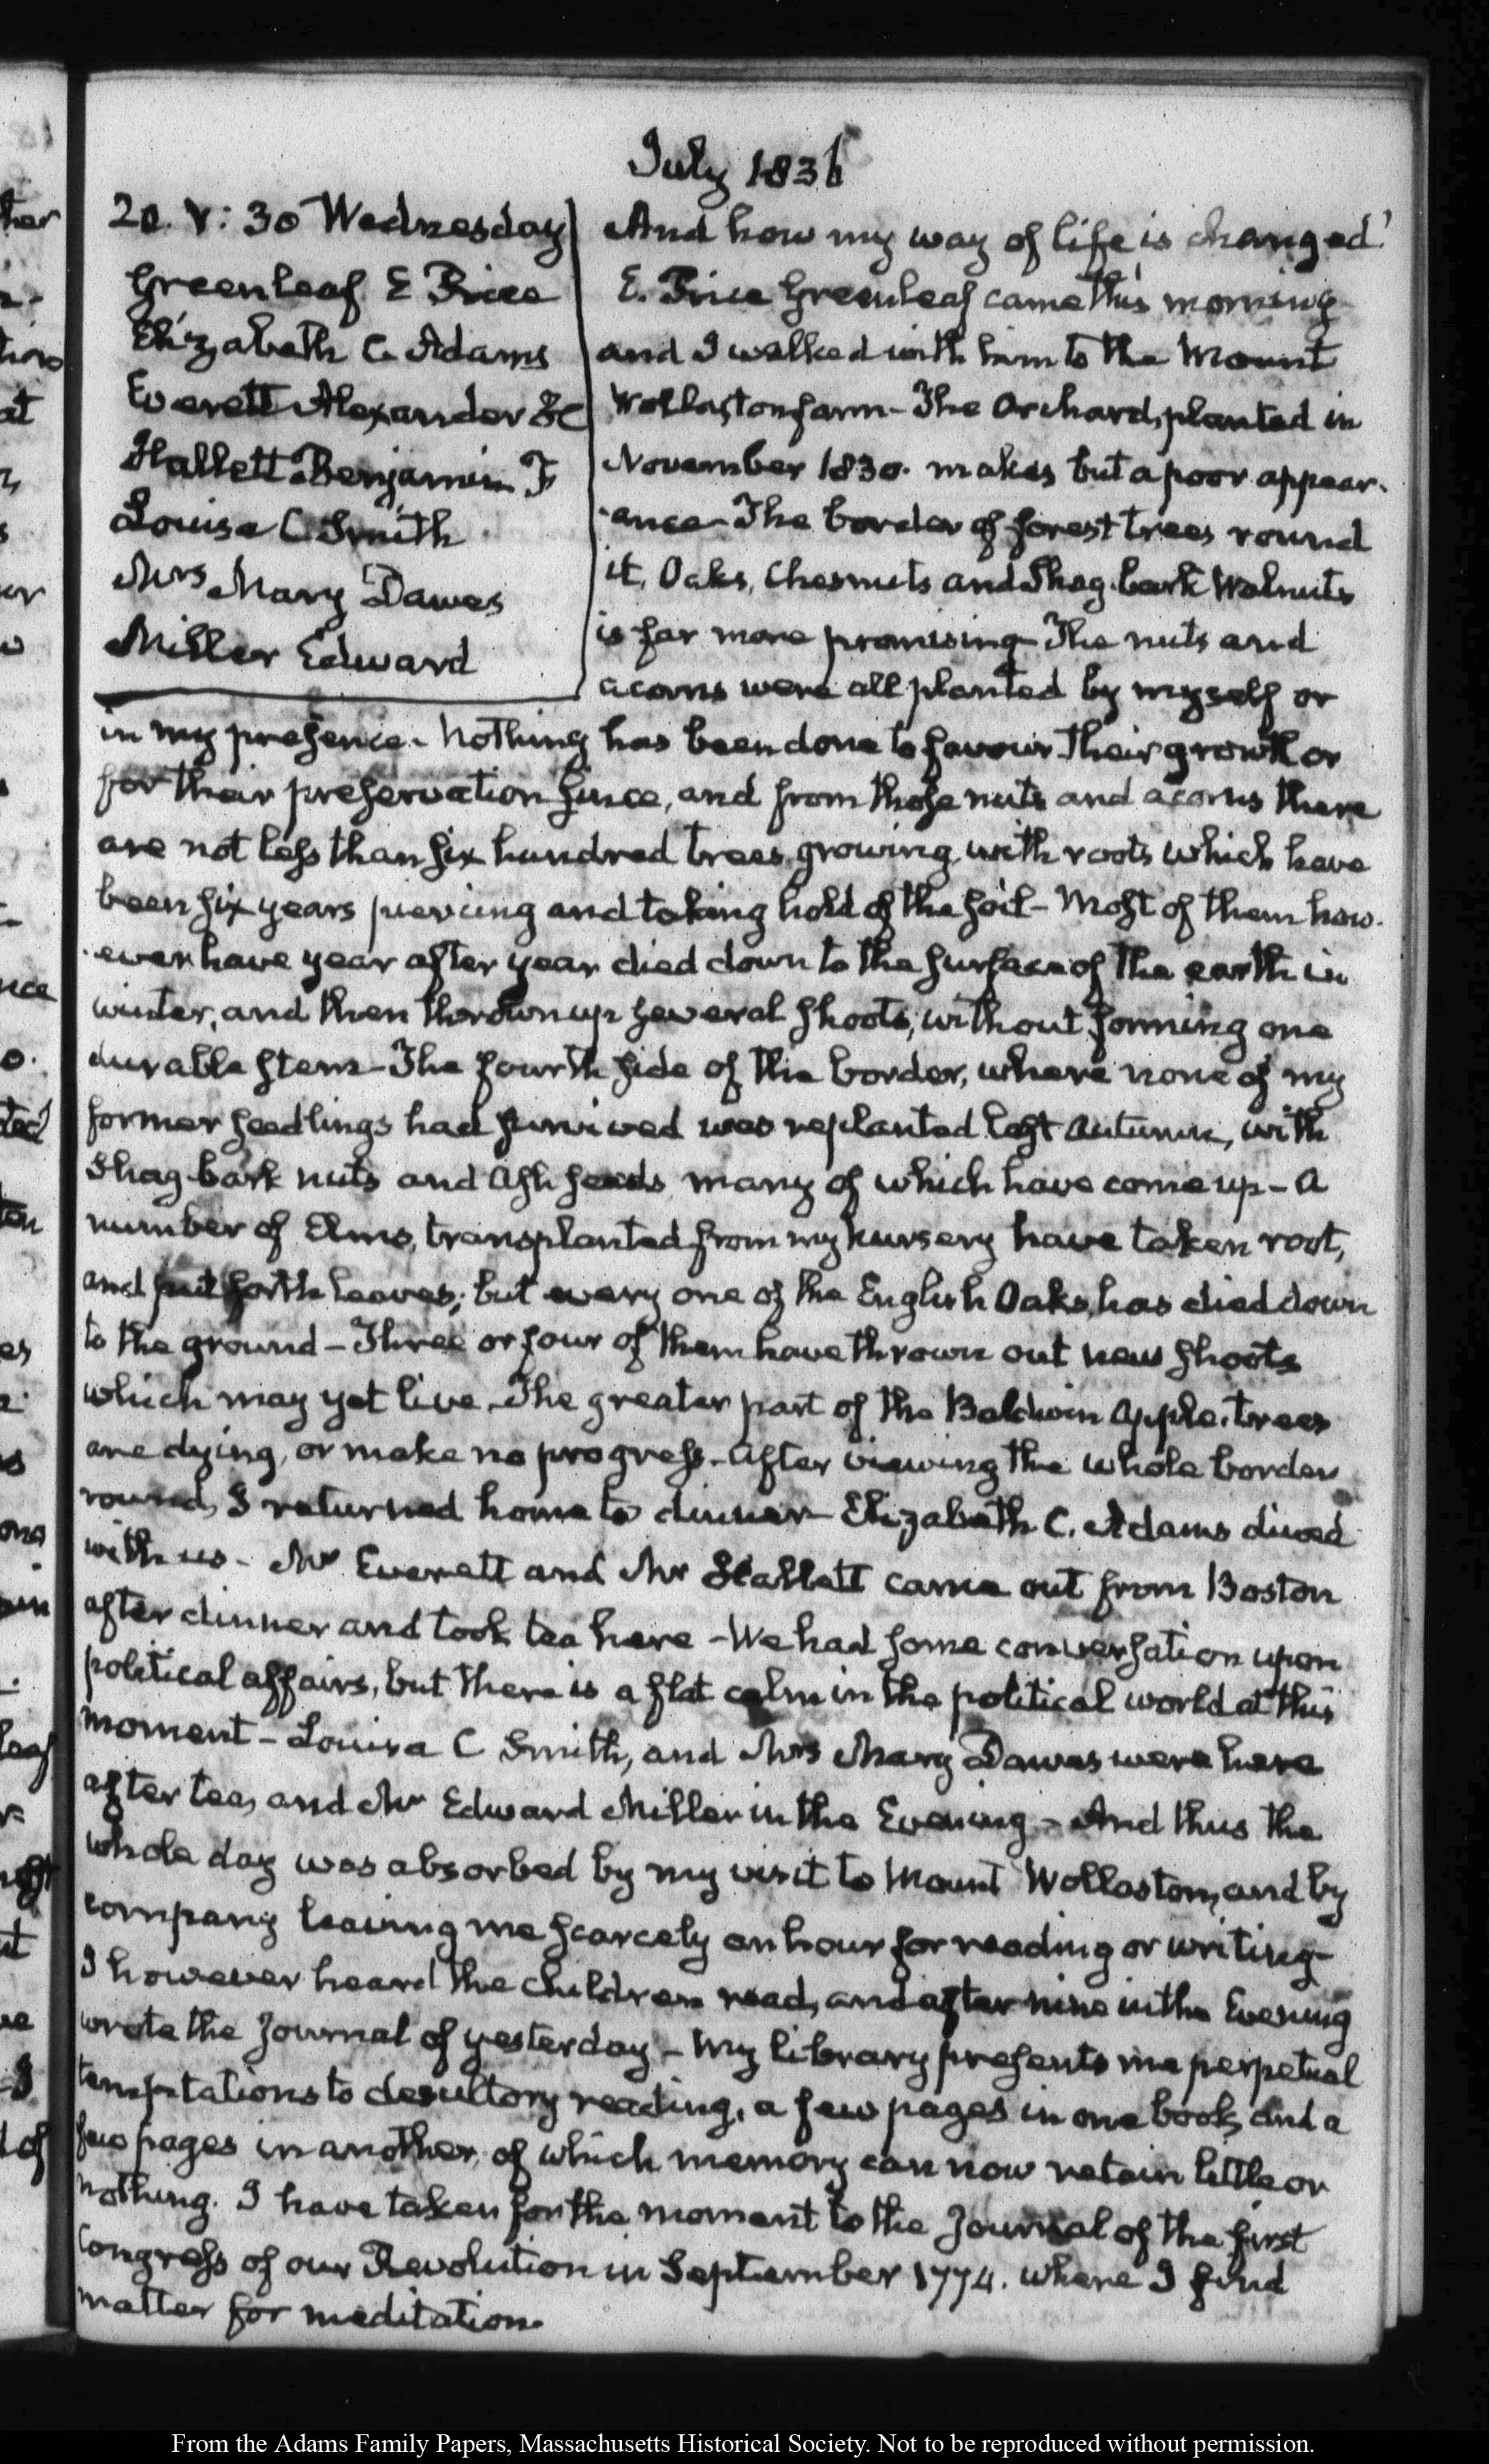 July 1836
20. V: 30 Wednesday
Greenleaf E Price
Elizabeth C. Adams
Everett Alexander H
Hallett Benjamin F
Louisa C Smith
Mrs Mary Dawes
Miller Edward
And how my way of life is changed!
E. Price Greenleaf came this morning
and I walked with him to the Mount
Wollaston farm - The Orchard, planted in
November 1830. makes but a poor appear-
-ance - The border of forest trees round
it, Oaks, Chesnuts and Shag-bark Walnuts
is far more promising - The nuts and
acorns were all planted by myself or
in my presence - Nothing has been done to favour their growth or
for their preservation since, and from those nuts and acorns there
are not less than six hundred trees growing with roots which have
been six years piercing and taking hold of the soil - Most of them how-
-ever have year after year died down to the surface of the earth in
winter, and then thrown up several shoots, without forming one
durable stem - The fourth side of the border, where none of my
former seedlings had survived was replanted last Autumn, with
Shag-bark nuts and Ash seeds many of which have come up - A
number of Elms, transplanted from my nursery have taken root,
and put forth leaves; but every one of the English Oaks, has died down
to the ground - Three or four of them have thrown out new shoots
which may yet live. The greater part of the Baldwin Apple-trees
are dying, or make no progress - After viewing the whole border
round, I returned home to dinner - Elizabeth C. Adams dined
with us - Mr Everett and Mr Hallett came out from Boston
after dinner and took tea here - We had some conversation upon
political affairs, but there is a flat calm in the political world at this
moment - Louisa C Smith, and Mrs Mary Dawes were here
after tea, and Mr Edward Miller in the Evening - And thus the
whole day was absorbed by my visit to Mount Wollaston, and by
company leaving me scarcely an hour for reading or writing -
I however heard the children read, and after nine in the Evening
wrote the Journal of yesterday - My library presents me perpetual
temptations to desultory reading, a few pages in one book, and a
few pages in another, of which memory can now retain little or
nothing. I have taken for the moment to the Journal of the first
Congress of our Revolution in September 1774. where I find
matter for meditation.
From the Adams Family Papers, Massachusetts Historical Society. Not to be reproduced without permission.